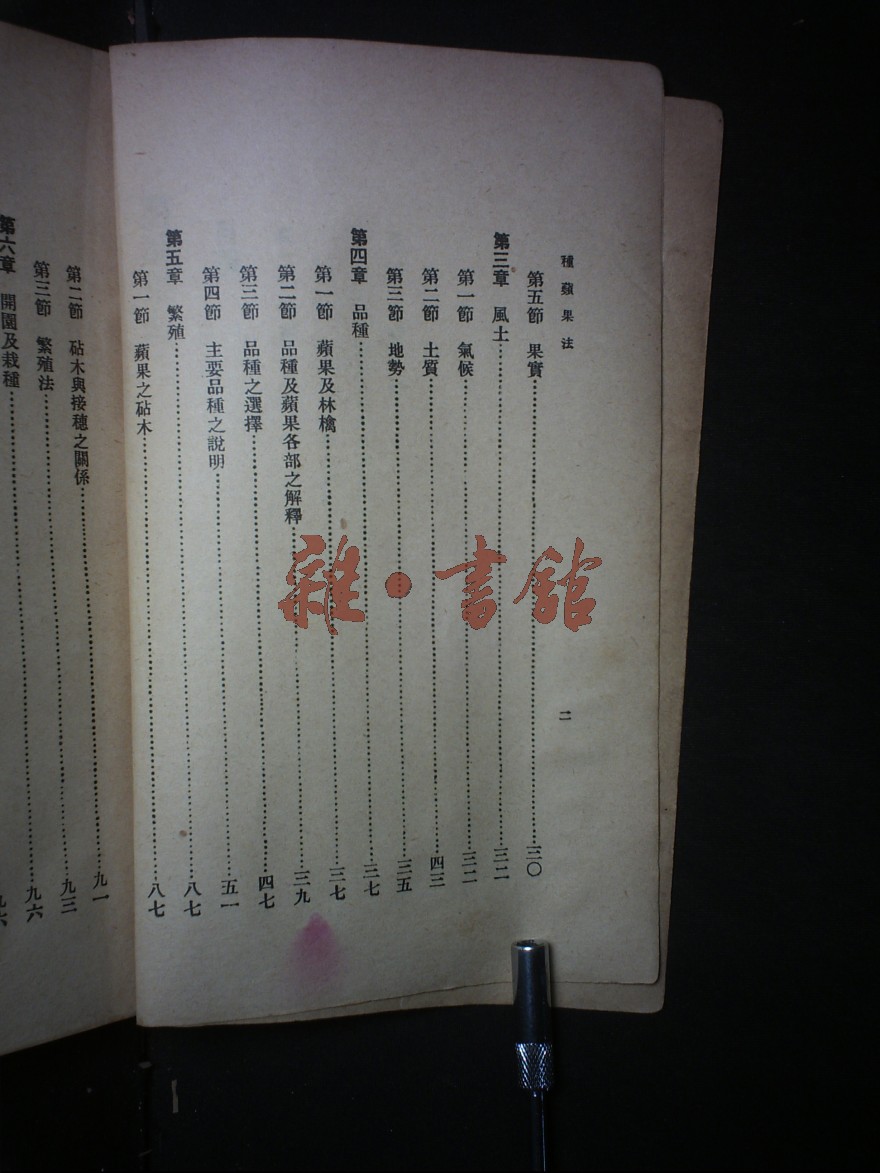 種蘋果法 二
第五節 果實 三〇
第三章 風土 三二
第一節 氣候 三二
第二節 土質 四三
第三節 地勢 三五
第四章 品種 三七
第一節 蘋果及林檎 三七
第二節 品種及蘋果各部之解釋 三九
第三節 品種之選擇 四七
第四節 主要品種之說明 五一
第五章 繁殖 八七
第一節 蘋果之砧木 八七
第二節 砧木與接穗之關係 九一
第三節 繁殖法 九三
第六章 開園及栽種 九六
雜·書館